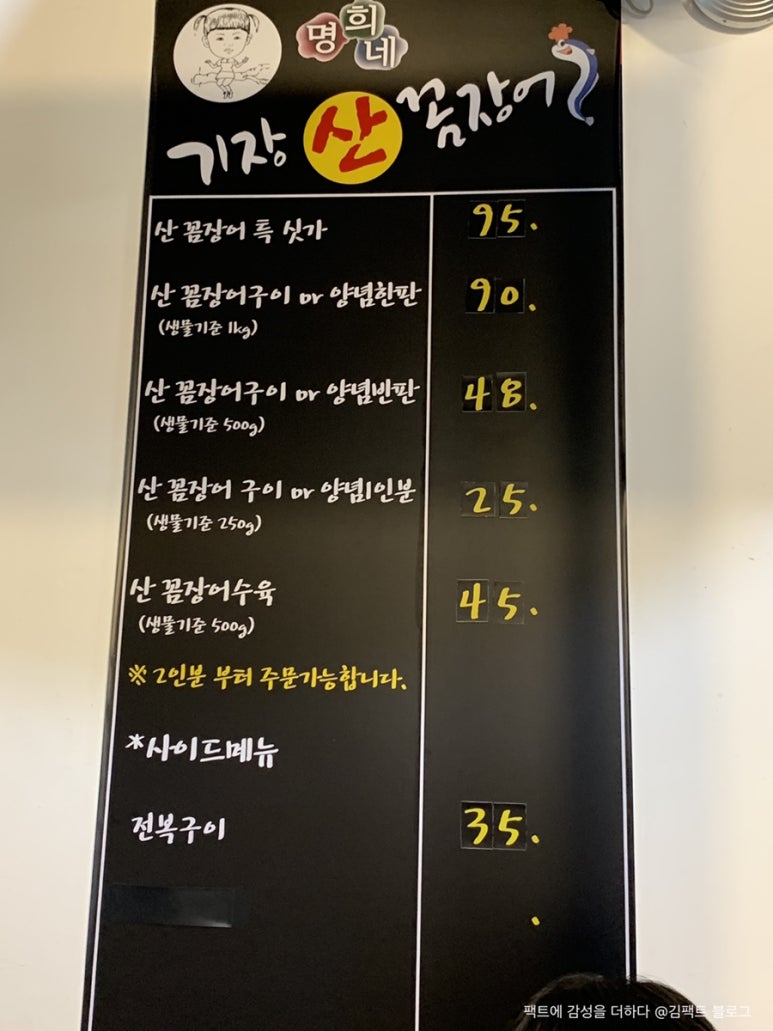 명희네
기장 산 꼼장어
산 꼼장어 특 싯가 95.
산 꼼장어구이 or 양념한판 90.
(생물기준 1kg)
산 꼼장어구이 or 양념반판 48.
(생물기준 500g)
산 꼼장어 구이 or 양념1인분 25.
(생물기준 250g)
산 꼼장어수육 45.
(생물기준 500g)
※ 2인분 부터 주문가능합니다.
*사이드메뉴
전복구이 35.
.
팩트에 감성을 더하다 @김팩트 블로그